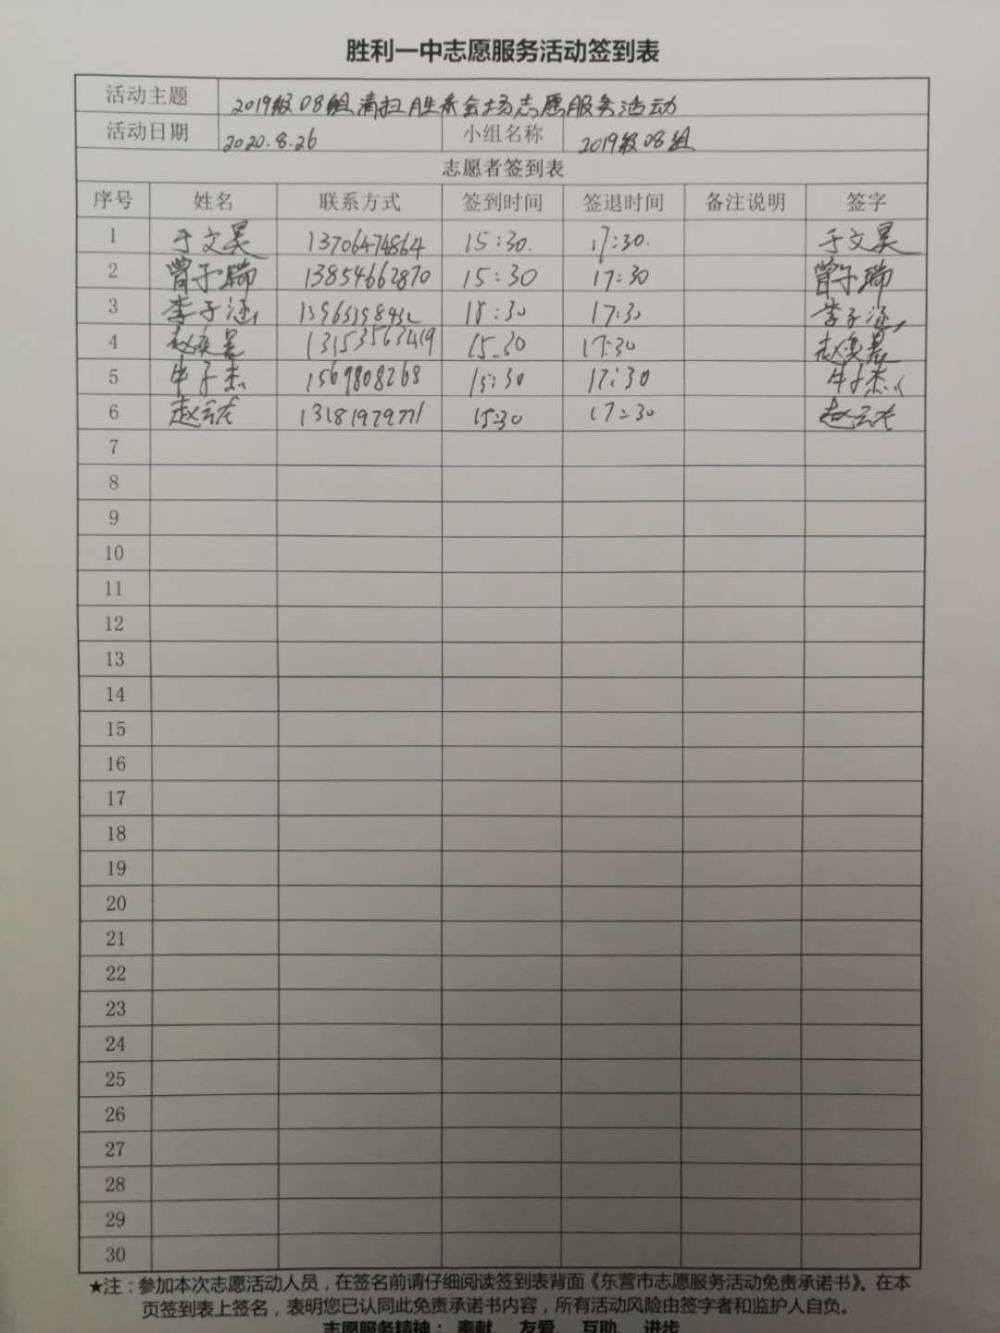 胜利一中志愿服务活动签到表
活动主题 2019级08组清扫胜东会场志愿服务活动
活动日期 2020.8.26 小组名称 2019级08组
志愿者签到表
序号 姓名 联系方式 签到时间 签退时间 备注说明 签字
1 于文昊 13706474864 15:30. 17:30. 于文昊
2 曾子瑞 13854662870 15:30 17:30 曾子瑞
3 李子涵 17:30 李子涵
4 赵奕景 13153563419 15:30 17:30 赵奕景
5 牛子杰 1569808268 15:30 17:30 牛子杰
6 赵云龙 13181979771 15:30 17:30 赵云龙
7
8
9
10
11
12
13
14
15
16
17
18
19
20
21
22
23
24
25
26
27
28
29
30
★注：参加本次志愿活动人员，在签名前请仔细阅读签到表背面《东营市志愿服务活动免责承诺书》。在本
页签到表上签名，表明您已认同此免责承诺书内容，所有活动风险由签字者和监护人自负。
志愿服务精神：奉献、友爱、互助、进步